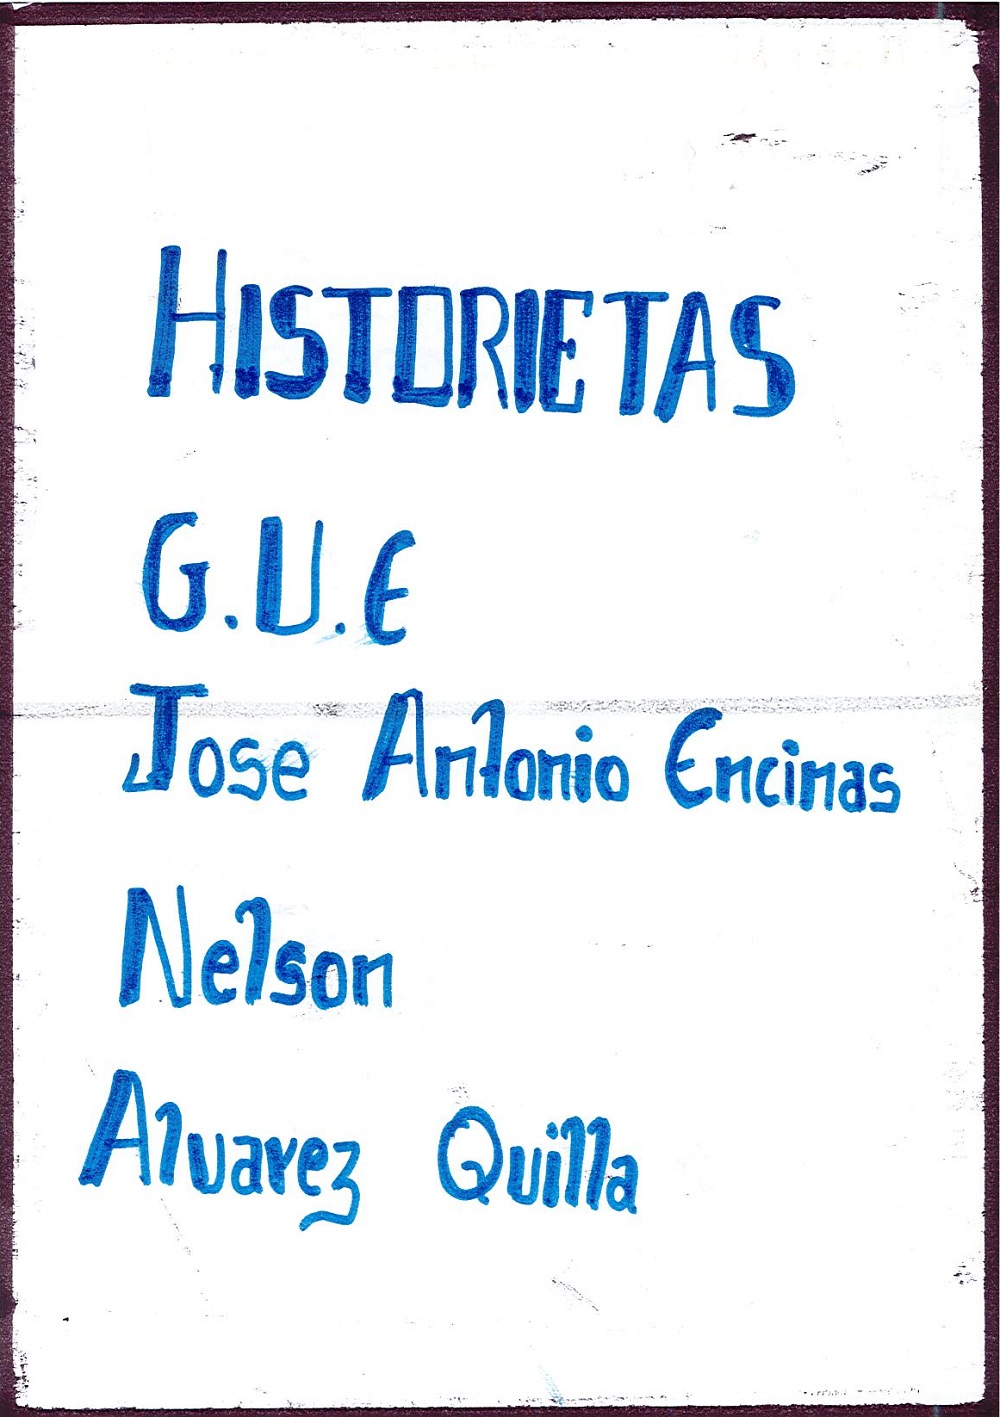 HISTORIETAS
G.U.E
Jose Antonio Encinas
Nelson
Alvarez Quilla